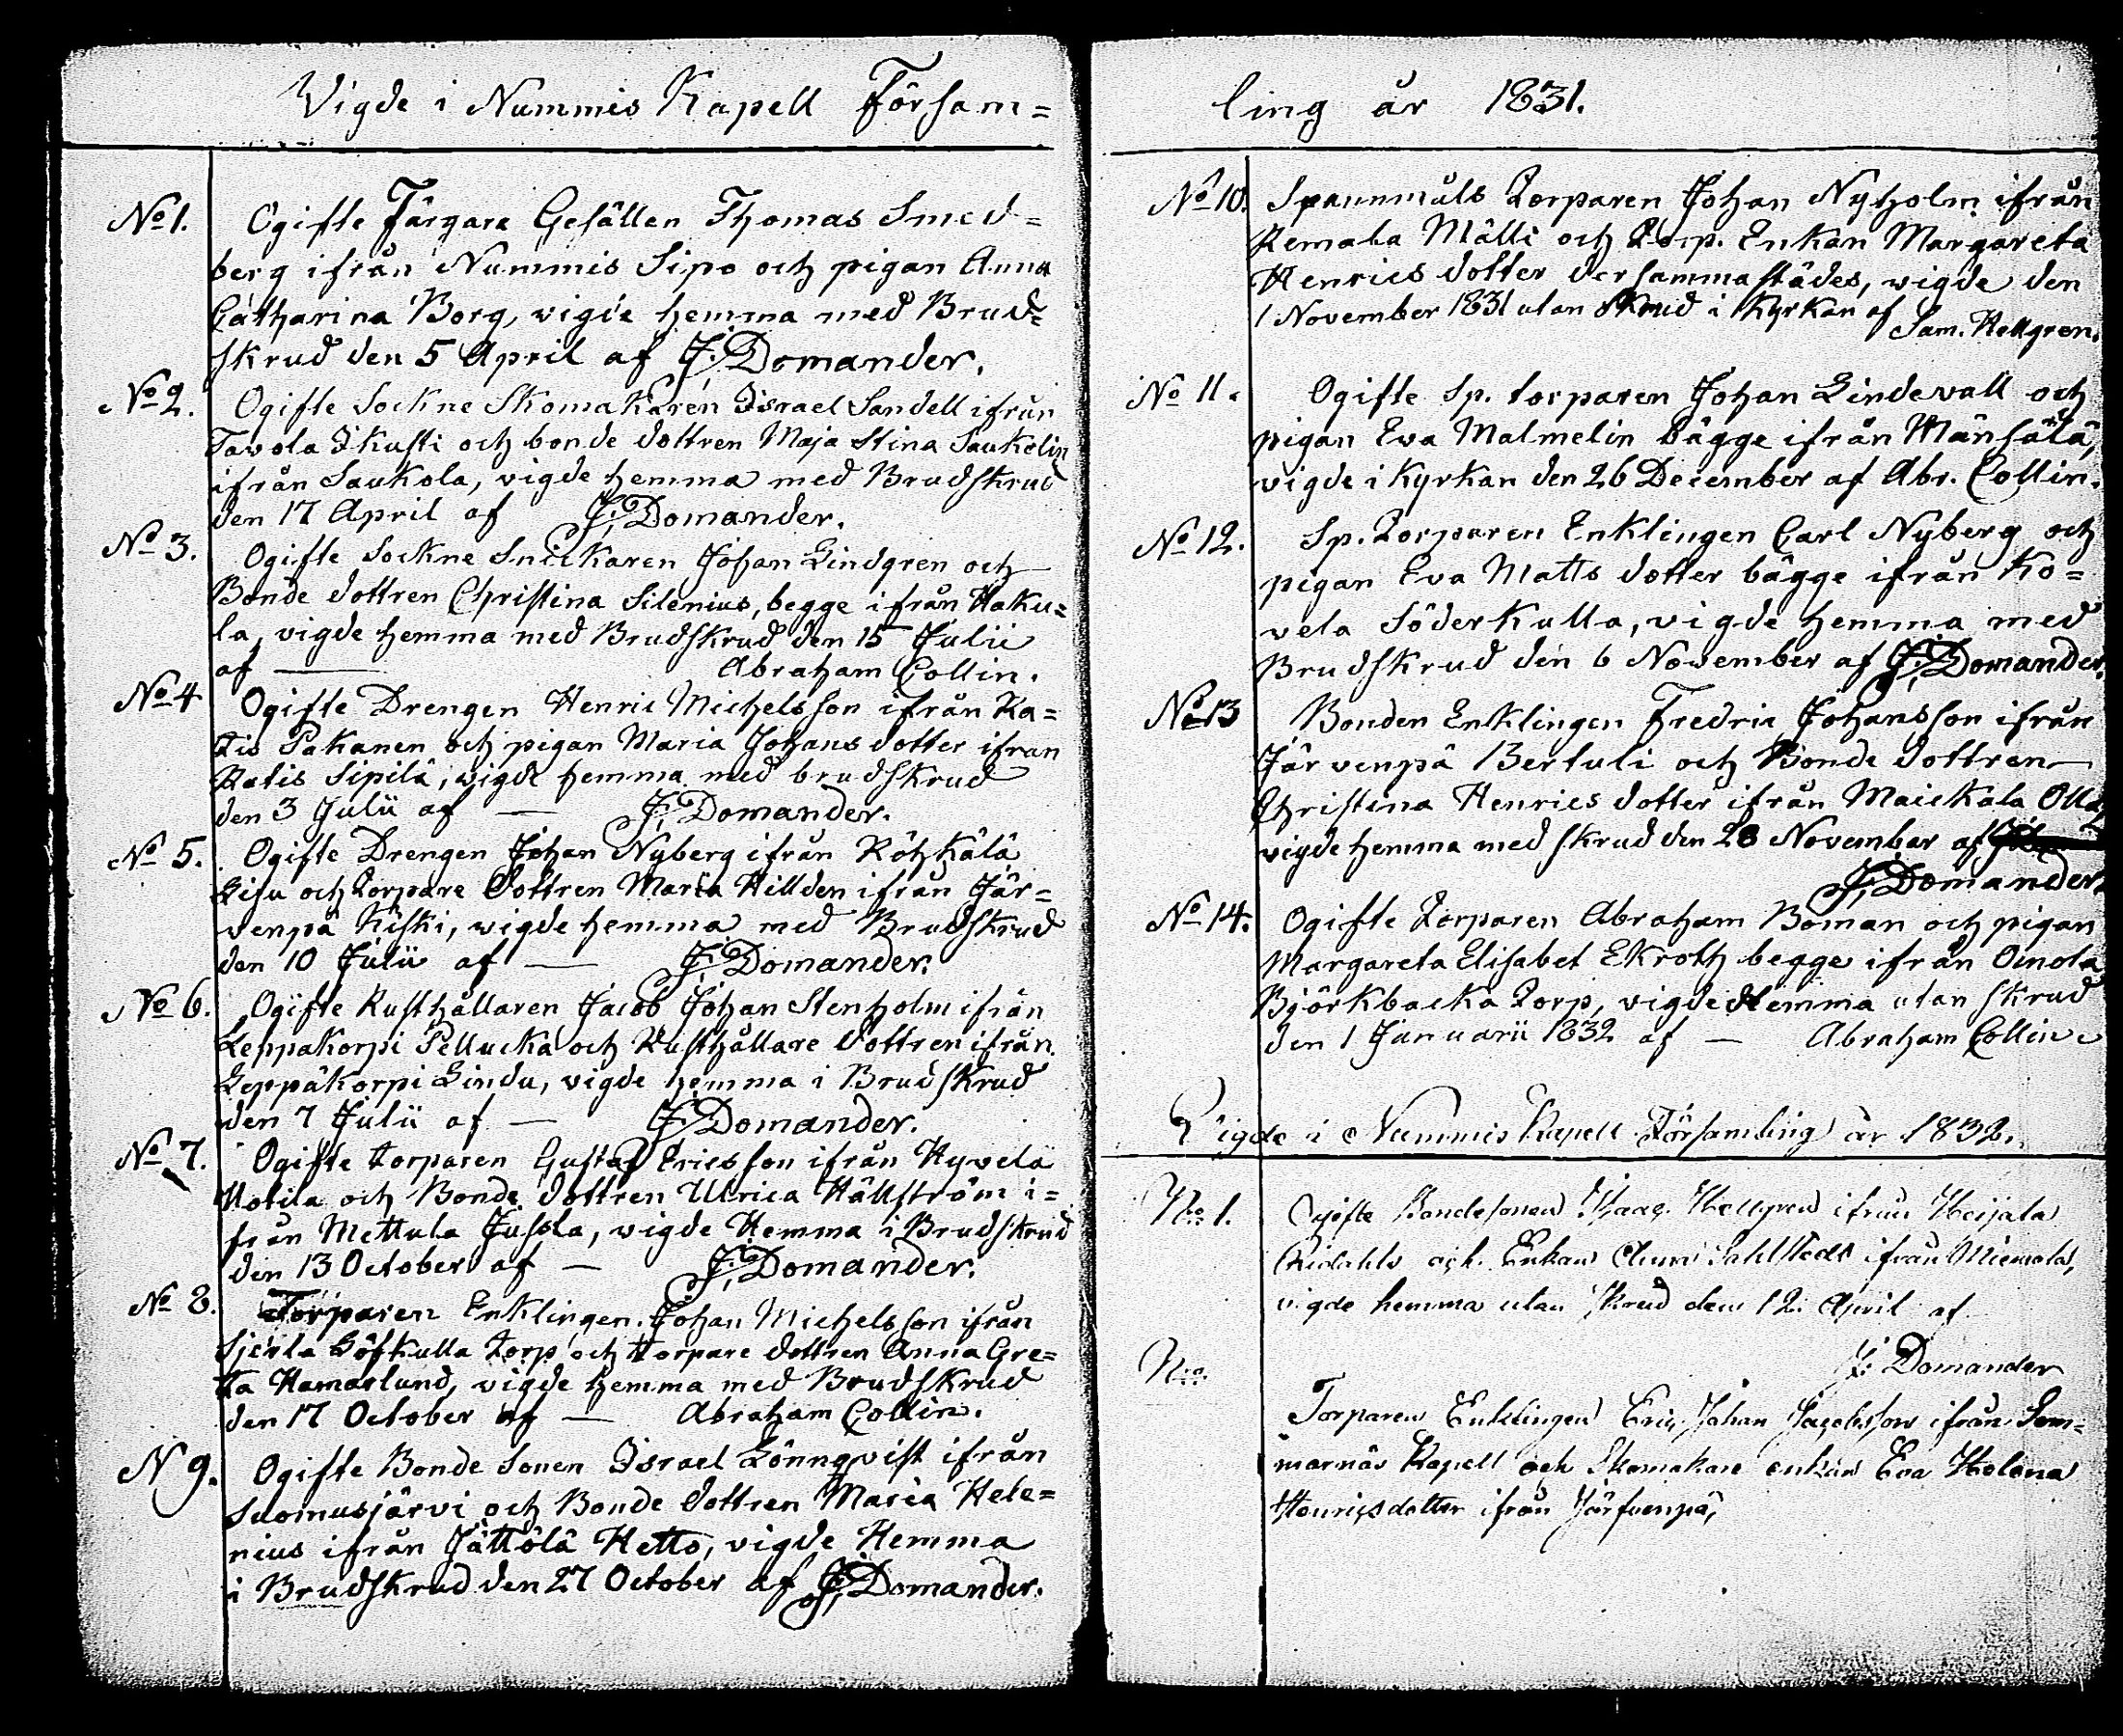 Vigde i Nummis Kapell Församling=
No 1. Ogifte Färgare Gesällen Thomas Smed=
berg ifrån Nummis Sipo och pigan Anna
Catharina Borg, vigde hemma med Brud=
skrud den 5 April af J; Domander.
No 2. Ogifte Sockne Skomakaren Israel Sandell ifrån
Tavola Ikusti och bonde dottren Maja Stina Saukelin
ifrån Saukola, vigde hemma med Brudskrud
den 17 April af J; Domander.
No 3. Ogifte Sockne Snickaren Johan Lindgren och
Bonde dottren Christina Silenius, begge ifrån Haku=
la, vigde hemma med Brudskrud den 15 Julii
af — Abraham Collin.
No 4 Ogifte Drengen Henric Michelsson ifrån Ra=
tis Pakanen och pigan Maria Johans dotter ifran
Ratis Sipilä, vigde hemma med brudskrud
den 3 Julii af — J; Domander.
No 5. Ogifte Drengen Johan Nyberg ifrån Röhkälä
Lisu och torpare Dottren Maria Hillden ifrån Jär=
venpä Kiski, vigde hemma med Brudskrud
den 10 Julii af — J; Domander.
No 6. Ogifte Rusthållaren Jacob Johan Stenholm ifrån
Leppäkorpi Pellucka och Rusthållare dottren ifrån
Leppäkorpi Lindu, vigde hemma i Brudskrud
den 7 Julii af — J; Domander.
No 7. Ogifte torparen Gustaf Ericsson ifrån Hyvelä
och Bonde dottren Ulrica Hällström i=
från Mettula Jussla, vigde Hemma i Brudskrud
den 13 October af — J; Domander.
No 8. Torparen Enklingen Johan Michelsson ifrån
Sjerla torp och torpare dottren Anna Gre=
ta Hamarlund, vigde hemma med Brudskrud
den 17 October af — Abraham Collin.
N 9. Ogifte Bonde Sonen Israel Lönnqvist ifrån
Suomusjärvi och Bonde dottren Maria Hele=
nius ifrån Jättölä Hetto, vigde Hemma
i Brudskrud den 27 October af J; Domander.
ling år 1831.
No 10. Spannmåls Torparen Johan Nyholm ifrån
Remala Mälli och Torp. Enkan Margareta
Henrics dotter dersammastädes, vigde den
1 November 1831 utan skrud i Kyrkan af
Sam. Hellgren.
No 11. Ogifte Sp. torparen Johan Lindevall och
pigan Eva Malmelin bägge ifrån Mänsälä,
vigde i Kyrkan den 26 December af Abr. Collin.
No 12. Sp. Torparen Enklingen Carl Nyberg och
pigan Eva Matts dotter bägge ifrån Ko=
vela Söderkulla, vigde hemma med
Brudskrud den 6 November af J; Domander.
No 13 Bonden Enklingen Fredric Johansson ifrån
Järvenpä Bertuli och Bonde dottren
Christina Henrics dotter ifrån Maickala Olla,
vigde hemma med skrud den 28 November af
J; Domander
No 14. Ogifte Torparen Abraham Boman och pigan
Margareta Elisabet Ekroth begge ifrån Oinola
Björkbacka Torp, vigde Hemma utan skrud
den 1 Januarii 1832 af — Abraham Collin
Vigde i Nummis Kapell Församling år 1832.
No 1. Ogifte Bondesonen Isaac Hellgren ifrån Heijala
och Enkan Anna Sahlstedt ifrån Miemola,
vigde hemma utan skrud den 12 April af
J: Domander
No. Torparen Enklingen Eric Johan Jacobsson ifrån Som=
marnäs Kapell och Skomakare enkan Eva Helena
Henricsdotter ifrån Järfvenpä,